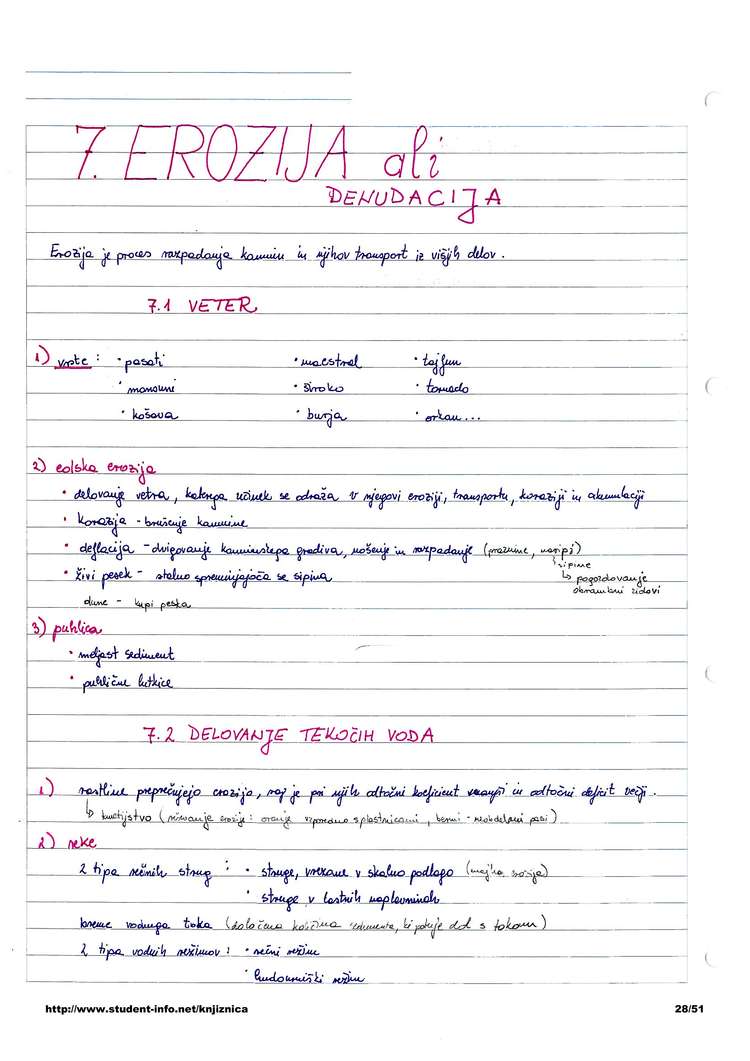 7. EROZIJA ali
DENUDACIJA
Erozija je proces razpadanja kamnin in njihov transport iz višjih delov.
7.1 VETER
1) vrste : • pasati • maestral • tajfun
• monsuni • široko • tornado
• košava • burja • orkan...
2) eolska erozija
• delovanje vetra, katerega učinek se odraža v njegovi eroziji, transportu, koraziji in akumulaciji
• Korazija - brušenje kamnine
• deflacija - dvigovanje kamninskega gradiva, nošenje in razpadanje (praznine, nasipi)
sipine
• živi pesek - stalno spreminjajoča se sipina
↳ pogozdovanje
obrambni zidovi
dune - kupi peska
3) puhlica
• meljast sediment
• puhlične lutkice
7.2 DELOVANJE TEKOČIH VODA
1) rastline preprečujejo erozijo, saj je pri njih odtočni koeficient manjši in odtočni deficit večji.
↳ kmetijstvo (oranje vzporedno s plastnicami, - neobdelani pasi)
2) reke
2 tipa rečnih strug : • struge, vrezane v skalno podlago (majhna erozija)
• struge v lastnih naplavinah
breme vodnega toka (določena količina sedimenta, ki potuje dol s tokom)
2 tipa vodnih režimov : • rečni režim
• hudourniški režim
http://www.student-info.net/knjiznica 28/51